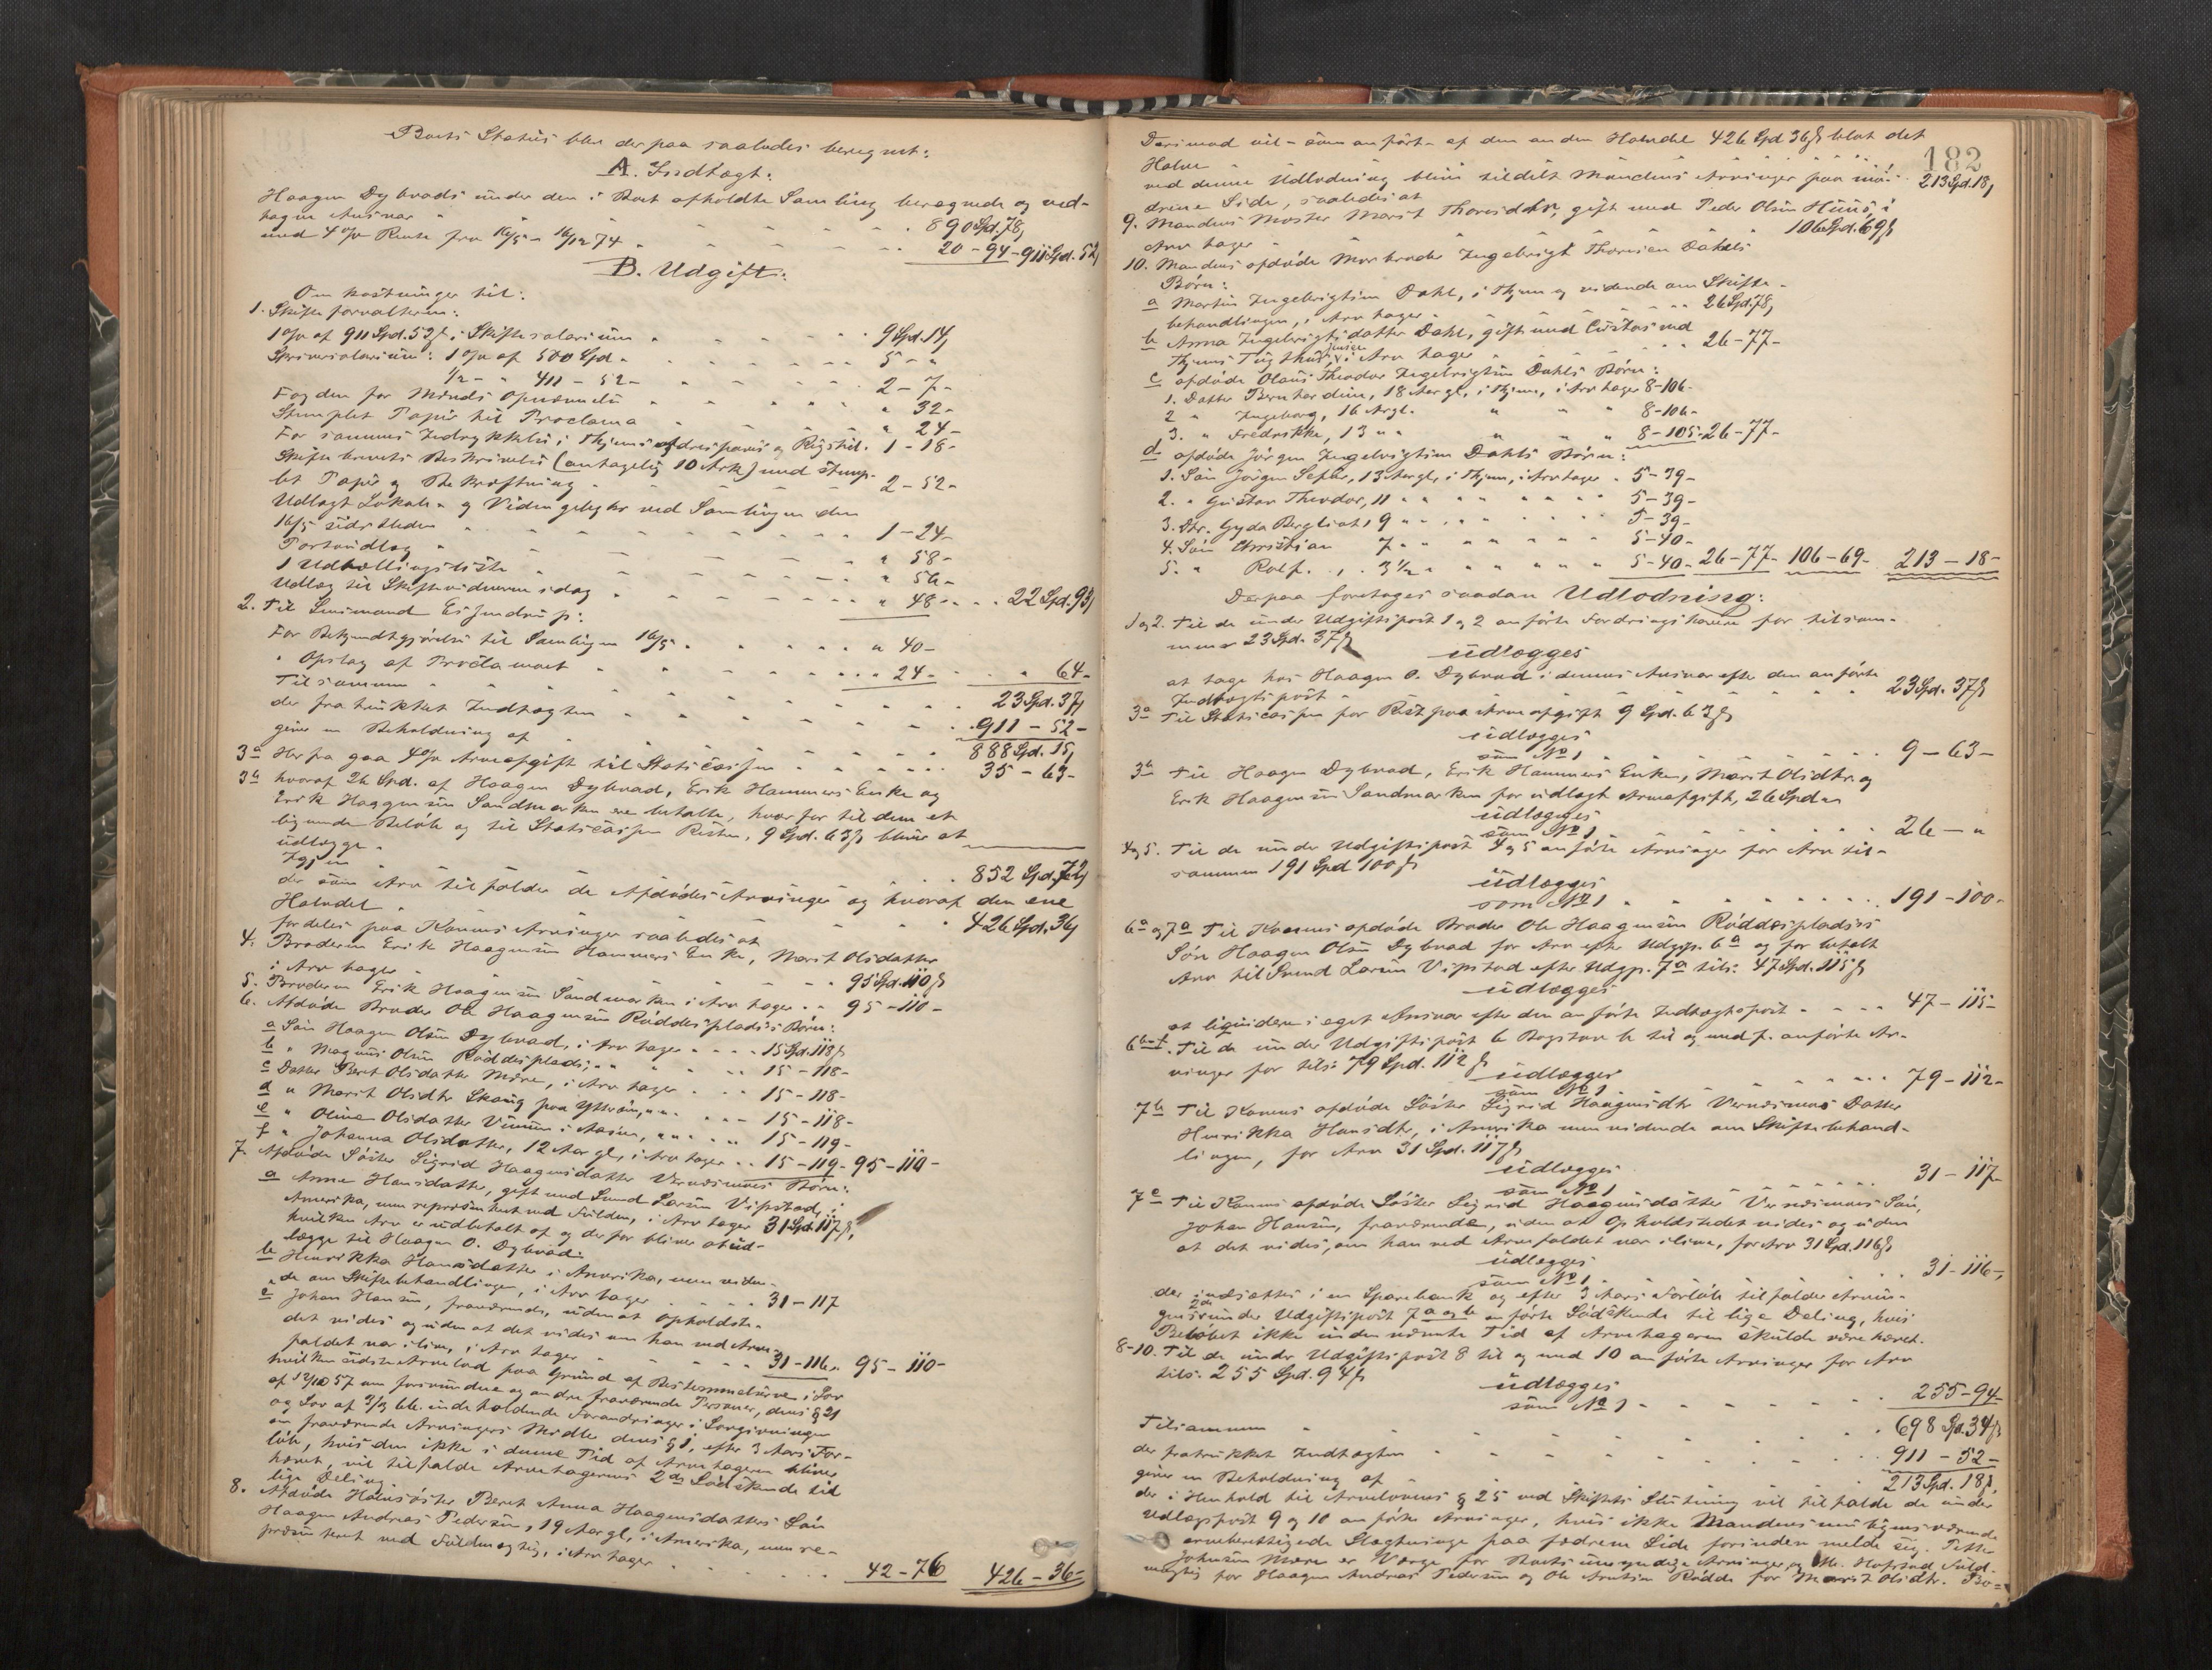 Boets Status blev derpaa saaledes beregnet:
A. Indtægt:
Haagen Dybvads under den i Boet afholdte Samling beregnede og ved-
tagne Ansvar " 890 Spd. 78 ß
med 4 o/o Rente fra 16/5 - 16/12 74 " 20 - 94 - 911 Spd. 52 ß
B. Udgift:
Omkostninger til:
1. Skifteforvalteren:
1 o/o af 911 Spd. 52 ß i Skiftesalarium 9 Spd. 14 ß
Skriversalarium: 1 o/o af 500 Spd. 5 - "
1/2 - " 411 - 52 - 2 - 7 -
Fogden for Mænds Opnævnelse " 32 -
Stemplet Papir til Proclama " 24 -
For sammes Indrykkelse i Thjems Adresseavis og Rigstid. 1 - 18 -
Skiftebrevets Beskrivelse (antagelig 10 Ark) med Stemp-
let Papir og Bekræftning 2 - 52 -
Udlagt Lokale- og Vidnegebyhr ved Samlingen den
16/5 sidstleden 1 - 24 -
Portoudlæg " 58 -
1 Udlodningsliste " 56 -
Udlæg til Skiftevidnerne idag " 48 - 22 Spd. 93 ß
2. Til Lensmand Essendrup:
For Bekjendtgjørelse til Samlingen 16/5 " 40 -
" Opslag af Proclamaet " 24 - " 64 -
Tilsammen 23 Spd. 37 ß
der fratrukket Indtægten 911 - 52 -
giver en Beholdning af 888 Spd. 15 ß
3a Herfra gaar 4 o/o Arveafgift til Statscassen 35 - 63 -
3b hvoraf 26 Spd. af Haagen Dybvad, Erik Hammers Enke og
Erik Haagensen Sandmarken ere betalte, hvorfor til dem et
lignende Beløb og til Statscassen Resten, 9 Spd. 63 ß bliver at
udlægge.
Igjen 852 Spd. 72 ß
der som Arv tilfalder de Afdødes Arvinger og hvoraf den ene
Halvdel 426 Spd. 36 ß
fordeles paa Konens Arvinger saaledes at
4. Broderen Erik Haagensen Hammers Enke, Marit Olsdatter
i Arv tager 95 Spd. 110 ß
5. Broderen Erik Haagensen Sandmarken i Arv tager 95 - 110 -
6. Afdøde Broder Ole Haagensen Røddespladsis Børn:
a Søn Haagen Olsen Dybvad, i Arv tager 15 Spd. 118 ß
b " Magnus Olsen Røddesplads, " " 15 - 118 -
c Datter Beret Olsdatter Mære, i Arv tager 15 - 118 -
d " Marit Olsdtr Skaug paa Ytterøen, " " 15 - 118 -
e " Oline Olsdatter Vinnem i Aasen, " " 15 - 119 -
f " Johanna Olsdatter, 12 Aar gl., i Arv tager 15 - 119 - 95 - 110 -
7. Afdøde Søster Sigrid Haagensdatter Vernesmoes Børn:
a Anne Hansdatter, gift med Svend Larsen Vipstad, i
Amerika, men repræsenteret ved Fulden, i Arv tager 31 Spd. 117 ß,
hvilken Arv er udbetalt af og derfor bliver at ud-
lægge til Haagen O. Dybvad.
b Henrikka Hansdatter i Amerika, men viden-
de om Skiftebehandlingen, i Arv tager 31 - 117
c Johan Hansen, fraværende, uden at Opholdste-
det vides og uden at det vides om han ved Arve-
faldet var i live, i Arv tager 31 - 116 - 95 - 110 -
hvilken sidste Arvelod paa Grund af Bestemmelserne i Lov
af 12/10 57 om forsvundne og andre fraværende Personer, dens § 21
og Lov af 3/3 66 indeholdende Forandringer i Lovgivningen
om fraværende Arvingers Midler dens § 1, efter 3 Aars For-
løb, hvis den ikke i denne Tid af Arvetageren bliver
hævet, vil tilfalde Arvetagerens 2de Sødskende til
lige Deling.
8. Afdøde Halvsøster Beret Anna Haagensdatters Søn
Haagen Andreas Pedersen, 19 Aar gl., i Amerika, men re-
præsenteret ved Fuldmægtig, i Arv tager 42 - 76 426 - 36 -
182
Derimod vil - som anført - af den anden Halvdel 426 Spd 36 ß blot det
Halve 213 Spd. 18 ß
ved denne Udlodning blive tildelt Mandens Arvinger paa mø-
drene Side, saaledes at
9. Mandens Moster Marit Thoresdtr, gift med Peder Olsen Huus, i
Arv tager 106 Spd. 69 ß
10. Mandens afdøde Morbroder Ingebrigt Thoresen Dahls
Børn:
a Martin Ingebrigtsen Dahl, i Thjem og vidende om Skifte-
behandlingen, i Arv tager 26 Spd. 78 ß
b Anna Ingebrigtsdatter Dahl, gift med Custos ved
Thjems Tugthus, Jensen, i Arv tager 26 - 77 -
c afdøde Olaus Theodor Ingebrigtsen Dahls Børn:
1. Datter Bernhardine, 18 Aar gl., i Thjem, i Arv tager 8 - 106 -
2 " Ingeborg, 16 Aar gl. " " " 8 - 106 -
3. " Fredrikke, 13 " " " " " 8 - 105 - 26 - 77 -
d afdøde Jørgen Ingebrigtsen Dahls Børn:
1. Søn Jørgen Sefer, 13 Aar gl., i Thjem, i Arv tager 5 - 39 -
2. " Gustav Theodor, 11 " " " " 5 - 39 -
3. Dtr. Gyda Bergliot, 9 " " " " 5 - 39 -
4. Søn Christian 7 " " " " 5 - 40 -
5. " Rolf. , . 3 1/2 " " " " 5 - 40 - 26 - 77 - 106 - 69 - 213 - 18 -
Derpaa foretages saadan Udlodning:
1 og 2. Til de under Udgiftspost 1 og 2 anførte Fordringshavere for tilsam-
men 23 Spd. 37 ß
udlægges
at tage hos Haagen O. Dybvad i dennes Ansvar efter den anførte
Indtægtspost 23 Spd. 37 ß
3a Til Statscassen for Rest paa Arveafgift 9 Spd. 63 ß
udlægges
som No 1 9 - 63 -
3b Til Haagen Dybvad, Erik Hammers Enke, Marit Olsdtr. og
Erik Haagensen Sandmarken for udlagt Arveafgift, 26 Spd. "
udlægges
som No 1 26 - "
4 og 5. Til de under Udgiftspost 4 og 5 anførte Arvinger for Arv til-
sammen 191 Spd 100 ß
udlægges
som No 1 191 - 100 -
6a og 7a Til Konens afdøde Broder Ole Haagensen Røddespladsis
Søn Haagen Olsen Dybvad for Arv efter Udgp. 6a og for betalt
Arv til Svend Larsen Vipstad efter Udgp. 7a tils: 47 Spd. 115 ß
udlægges
at liquidere i eget Ansvar efter den anførte Indtægtspost 47 - 115 -
6b-f. Til de under Udgiftspost 6 Bogstav b til og med f. anførte Ar-
vinger for tils: 79 Spd. 112 ß
udlægges
som No 1 79 - 112 -
7b Til Konens afdøde Søster Sigrid Haagensdtr Vernesmoes Datter
Henrikka Hansdtr, i Amerika men vidende om Skiftebehand-
lingen, for Arv 31 Spd. 117 ß
udlægges
som No 1 31 - 117 -
7c Til Konens afdøde Søster Sigrid Haagensdatter Vernesmoes Søn,
Johan Hansen, fraværende, uden at Opholdstedet vides og uden
at det vides, om han ved Arvefaldet var i live, for Arv 31 Spd. 116 ß
udlægges
som No 1 31 - 116 -,
der indsættes i en Sparebank og efter 3 Aars Forløb tilfalder Arvin-
gens 2de under Udgiftspost 7 a og b anførte Sødskende til lige Deling, hvis
Beløbet ikke inden nævnte Tid af Arvetageren skulde være hævet.
8-10. Til de under Udgiftspost 8 til og med 10 anførte Arvinger for Arv
tils. 255 Spd. 94 ß
udlægges
som No 1 255 - 94
Tilsammen 698 Spd. 34 ß
der fratrukket Indtægten 911 - 52 -
giver en Beholdning af 213 Spd. 18 ß,
der i Henhold til Arvelovens § 25 ved Skiftets Slutning vil tilfalde de under
Udlægspost 9 og 10 anførte Arvinger, hvis ikke Mandens muligens værende
arveberettigede Slægtninge paa fædrene Side forinden melde sig. Petter
Johnsen Mære er Værge for Boets umyndige Arvinger, og Hofstad Fuld-
mægtig for Haagen Andreas Pedersen og Ole Arntsen Rødde for Marit Olsdtr. Bo=